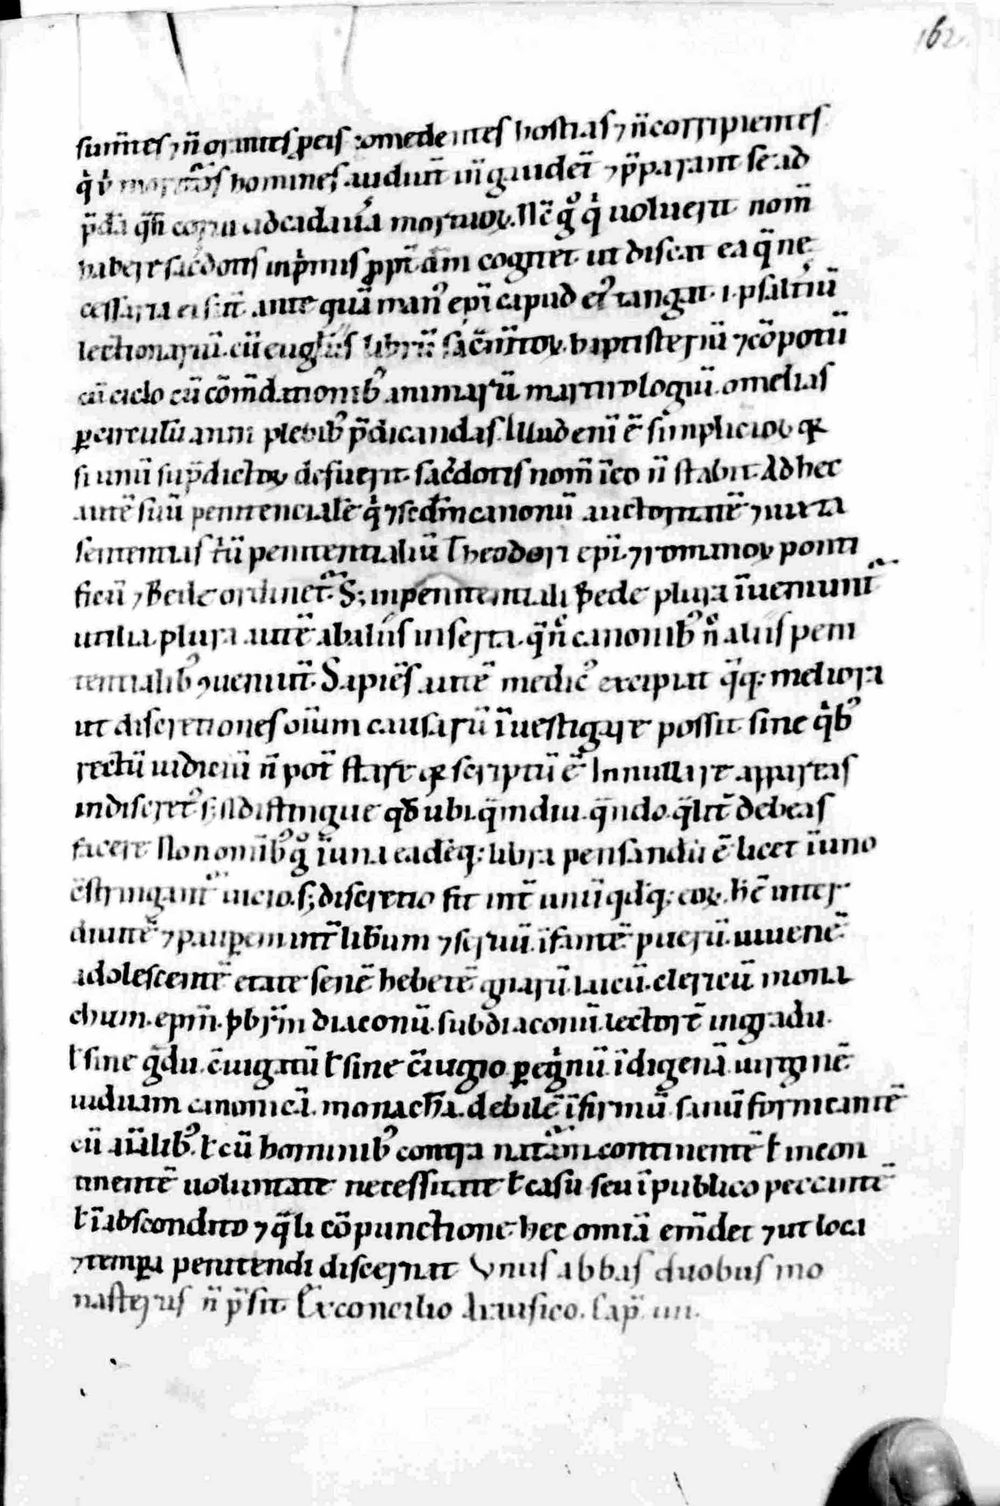 162
sum̄tes ⁊ n̄ orantes ꝓ eis comedentes hostias ⁊ n̄ corripientes
homines audiunt gaudēt ⁊ p̄parant se ad
p̄dā ad cadauera mortuoꝝ. Nc̄ g° qͥ uoluerit nom̄
habere sac̄dotis inpͥmis ꝓpt̄ cogitet ut discat ea q̄ ne
cessaria ei sūt ante quā man᷒ ep̄i capud ei᷒ tangat .i. psalt̄iū
lectionariū. cū euḡliis librū sac̄m̄toꝝ. baptisteriū ⁊ cōpotū
cū ciclo cū cōm̄dationib᷒ animarū martirologiū. omelias
ꝑ circulū anni plebib᷒ p̄dicandas. Unde ē simplicioꝝ
si unū sup̄dictoꝝ defuerit. sac̄dotis nom̄ ī eo n̄ stabit. Ad hec
autē suū penitencialē qͥ ⁊ sc̄dm canonū auctoritatē ⁊ iuxta
sententias t̄ū penitentialiū Theodori ep̄i. ⁊ romanoꝝ ponti
ficū ⁊ Bede ordinet̄. S; in penitentiali Bede plura īueniunt̄
utilia. plura autē ab aliis inserta. q̄ n° canonib᷒ n° aliis peni
tentialib᷒ ꝯueniūt. Sapiēs autē medic᷒ excipiat q̄q; meliora
ut discretiones oīum causarū īuestigare possit. sine qͥb᷒
rectū iudiciū n̄ pot̄ stare scriptū ē. In nulla re appareas
indiscret᷒ s; distingue qd ubi. q̄mdiu. q̄ndo. q̄lit̄ debeas
facere. Non om̄ib᷒ g° ī una eadēq; libra pensandū ē licet ī uno
ēstringant̄ uicio. s; discretio sit int̄ unū qdq; eoꝝ. hē inter
diuitē ⁊ pauꝑem int̄ lib̄um ⁊ seruū. īfantē puerū. iuuenē.
adolescentē etate senē hebetē gnarū. laicū. clericū mona
chum. ep̄m. p̄br̄m diaconū. subdiaconū. lectorē in gradu.
ł sine gᷓdu. c̄iugatū ł sine c̄iugio. ꝑegͥnū. īdigenā. uirginē
uiduam canonicā. monachā. debilē īfirmū sanū fornicantē
cū aīalib᷒. ł cū hominib᷒ contra naturam. continentē ł incon
tinentē uoluntate necessitate ł casu seu ī publico peccantē
ł ī abscondito ⁊ q̄li cōpunctione. hec omīa em̄det ⁊ ut loca
⁊ tempora penitendi discernat Vnus abbas duobus mo
nasteriis n̄ p̄sit. Ex concilio Arausico. Cap̄. iiii.